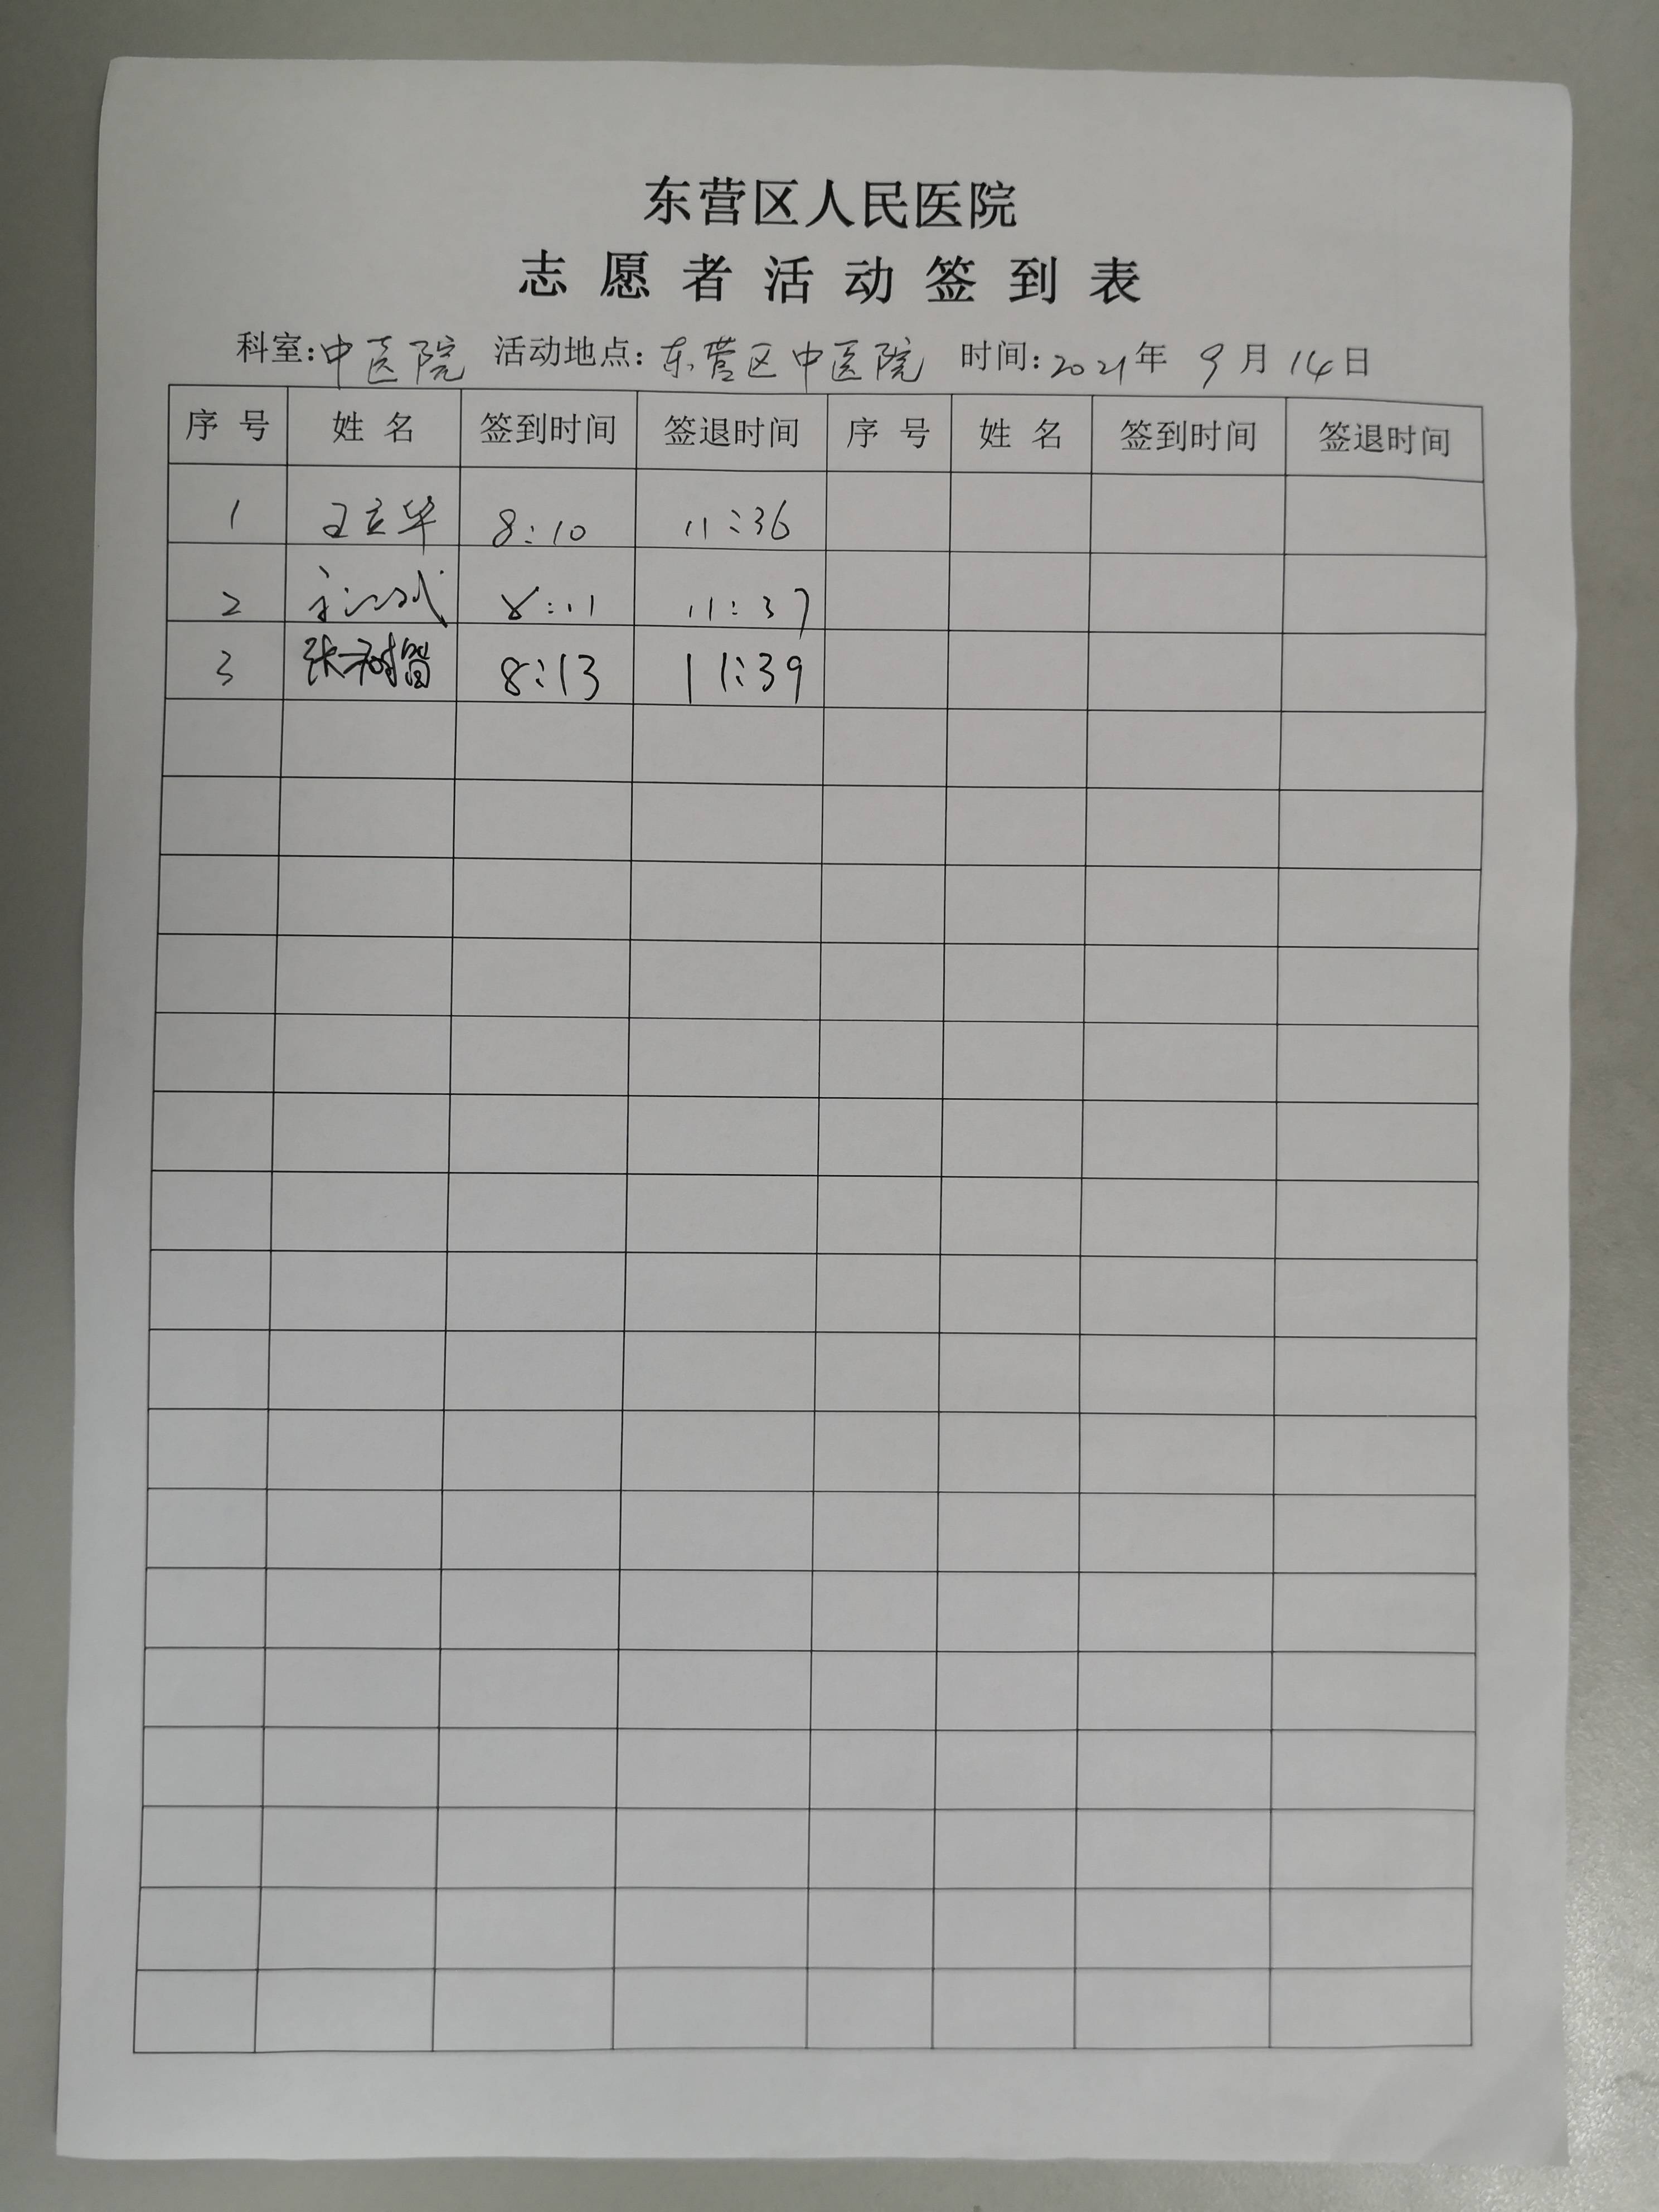 东营区人民医院
志愿者活动签到表
科室:中医院 活动地点:东营区中医院 时间:2021年 9月 14日
序号 姓名 签到时间 签退时间 序号 姓名 签到时间 签退时间
1 王立华 8:10 11:36
2 8:11 11:37
3 张 8:13 11:39